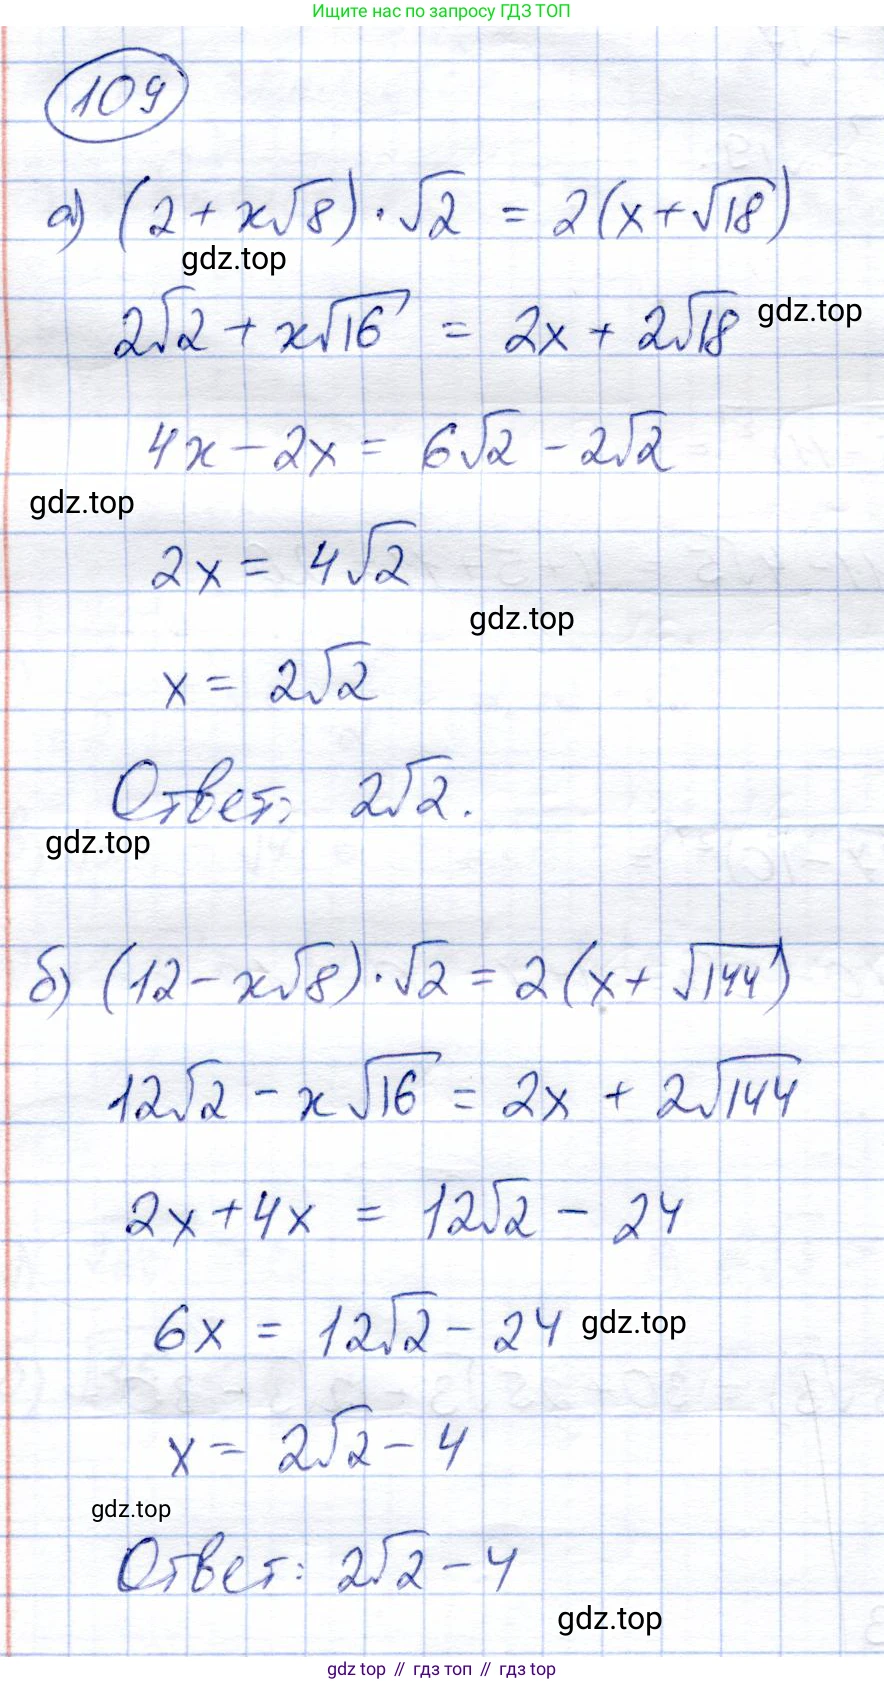 Ищите нас по запросу ГДЗ ТОП
109
а) (2 + x√8) · √2 = 2(x + √18)
gdz.top
2√2 + x√16 = 2x + 2√18
gdz.top
4x - 2x = 6√2 - 2√2
gdz.top
2x = 4√2
gdz.top
x = 2√2
Ответ: 2√2.
gdz.top
б) (12 - x√8) · √2 = 2(x + √144)
12√2 - x√16 = 2x + 2√144
2x + 4x = 12√2 - 24
6x = 12√2 - 24
gdz.top
x = 2√2 - 4
gdz.top
Ответ: 2√2 - 4
gdz.top
gdz top // гдз топ // гдз top